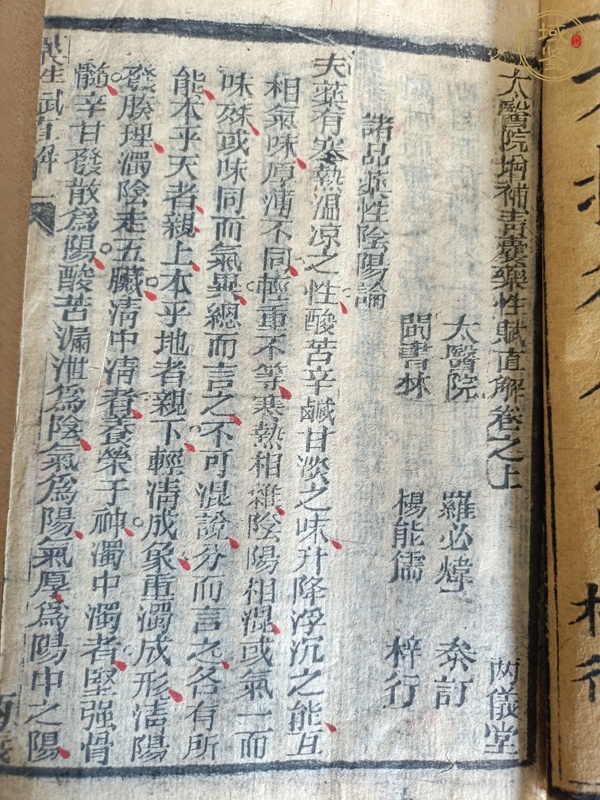 太醫院增補青囊藥性賦直解卷之上
两儀堂
太醫院 羅必煒 叅訂
閩書林 楊能儒 梓行
諸品藥性陰陽論
夫藥有寒熱温凉之性酸苦辛鹹甘淡之味升降浮沉之能互
相氣味厚薄不同輕重不等寒熱相雜陰陽相混或氣一而
味殊或味同而氣異總而言之不可混說分而言之各有所
能本乎天者親上本乎地者親下輕清成象重濁成形清陽
發腠理濁陰走五臟清中清者養榮于神濁中濁者堅强骨
髓辛甘發散爲陽酸苦漏泄爲陰氣爲陽氣厚爲陽中之陽